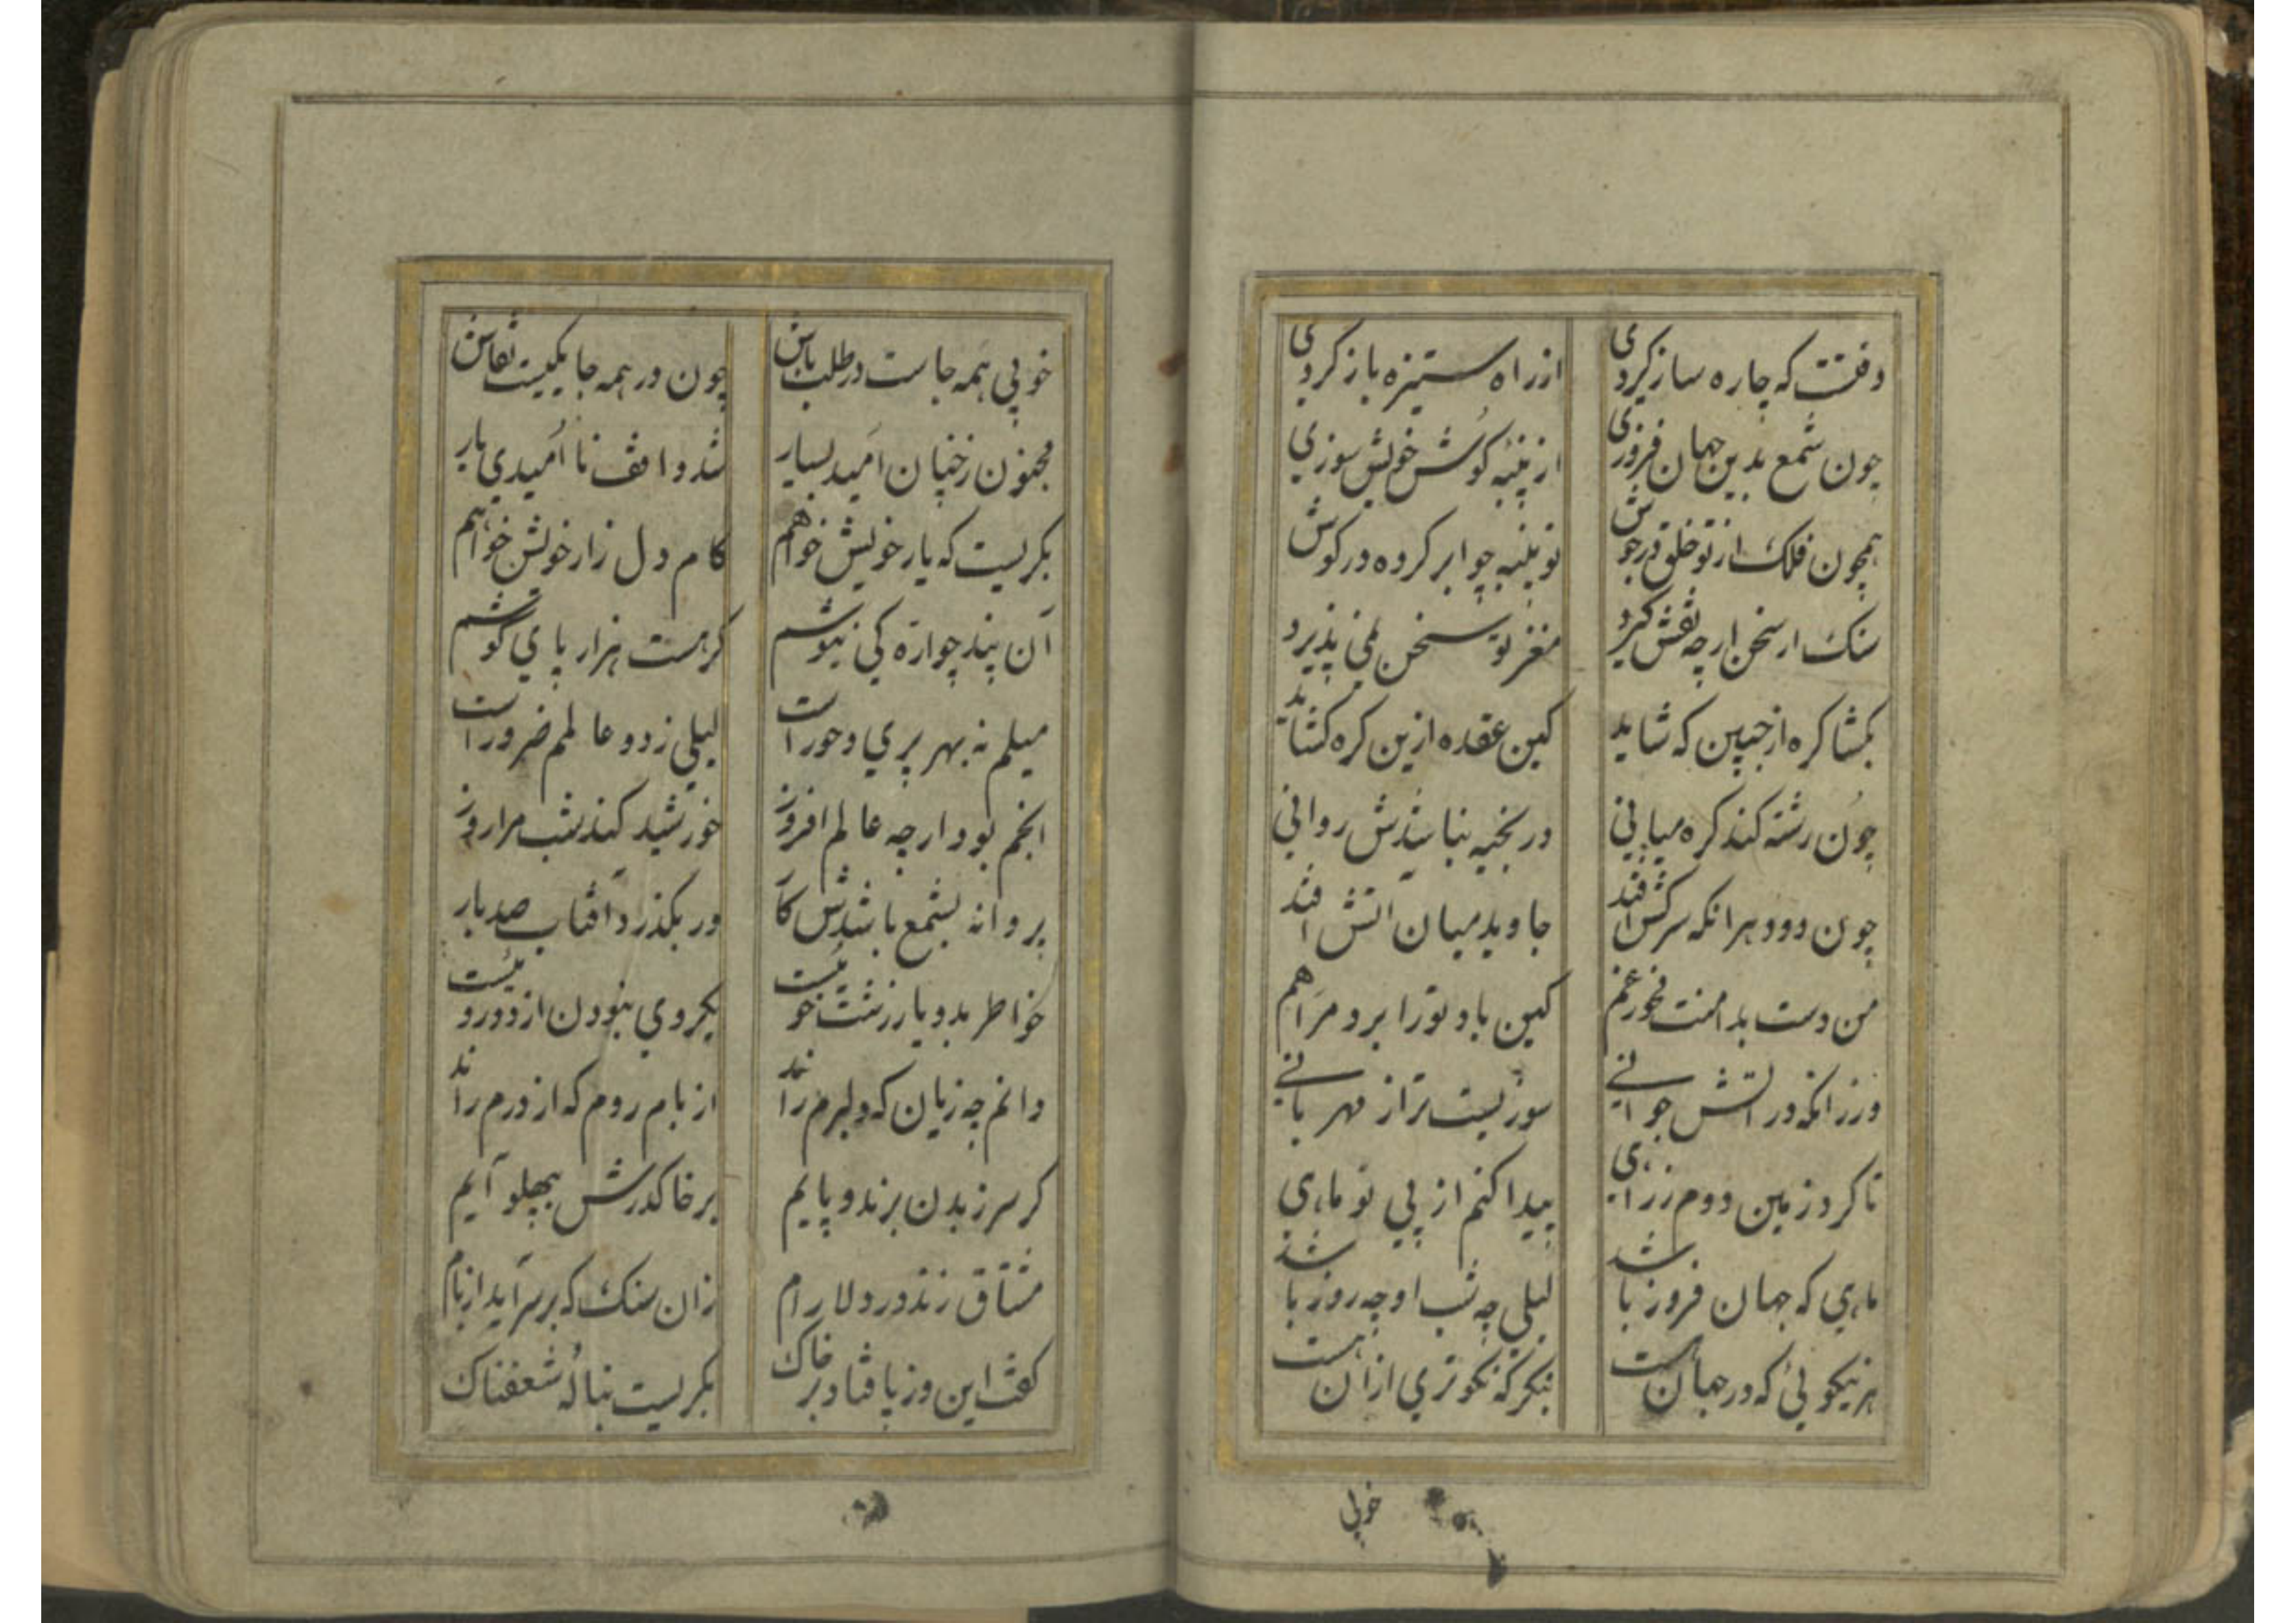 وقتست که چاره ساز کردی از راه ستیزه باز کردی
چون شمع بدین جهان فروزی از پنبه کوش خویش سوزی
همچون فلک از تو خلق در جوش تو پنبه چو ابر کرده در کوش
سنک ار سخن ار چه نقش کیرد مغز تو سخن نمی پذیرد
بکشا کره از جبین که شاید کین عقده ازین کره کشاید
چون رشته کند کره میانی در بخیه نباشدش روانی
چون دود هر انکه سرکش افتد جاوید میان آتش افتد
من دست بدامنت نخورغم کین باد تو را برد مرا هم
ورزانکه در آتش جوانی سوزیست تر از مهربانی
تا کرد زمین دوم زرای پیدا کنم از پی تو ماهی
ماهی که جهان فروز باشد لیلی چه شب او چه روز باشد
هر نیکوئی که در جهان است بنکر که نکوتری ازان هست
خوبی
خوبی همه جاست در طلب باش چون در همه جا یکیست نقاش
مجنون زچنان امید بسیار شد واقف نا اُمیدی یار
بکریست که یار خویش خواهم کام دل زار خویش خواهم
آن پند چو اره کی نیوشم کر هست هزار پای کوشم
میلم نه بهر پری و حور است لیلی زدو عالمم ضرور است
انجم بود ار چه عالم افروز خورشید کند شب مرا روز
پروانه بشمع باشدش کار ور بکذرد آفتاب صد بار
خواطر بدو یار زشت خوئیست یکروی نبودن از دوروئیست
دانم چه زیان که دلبرم راند از بام روم که از درم راند
کر سر ز بدن برند و پایم بر خاک درش بپهلو آیم
مشتاق زند در دلارام زان سنک که بر سر آید از بام
کفت این و ز پا فتاد بر خاک بکریست بنالهٔ شعفناک